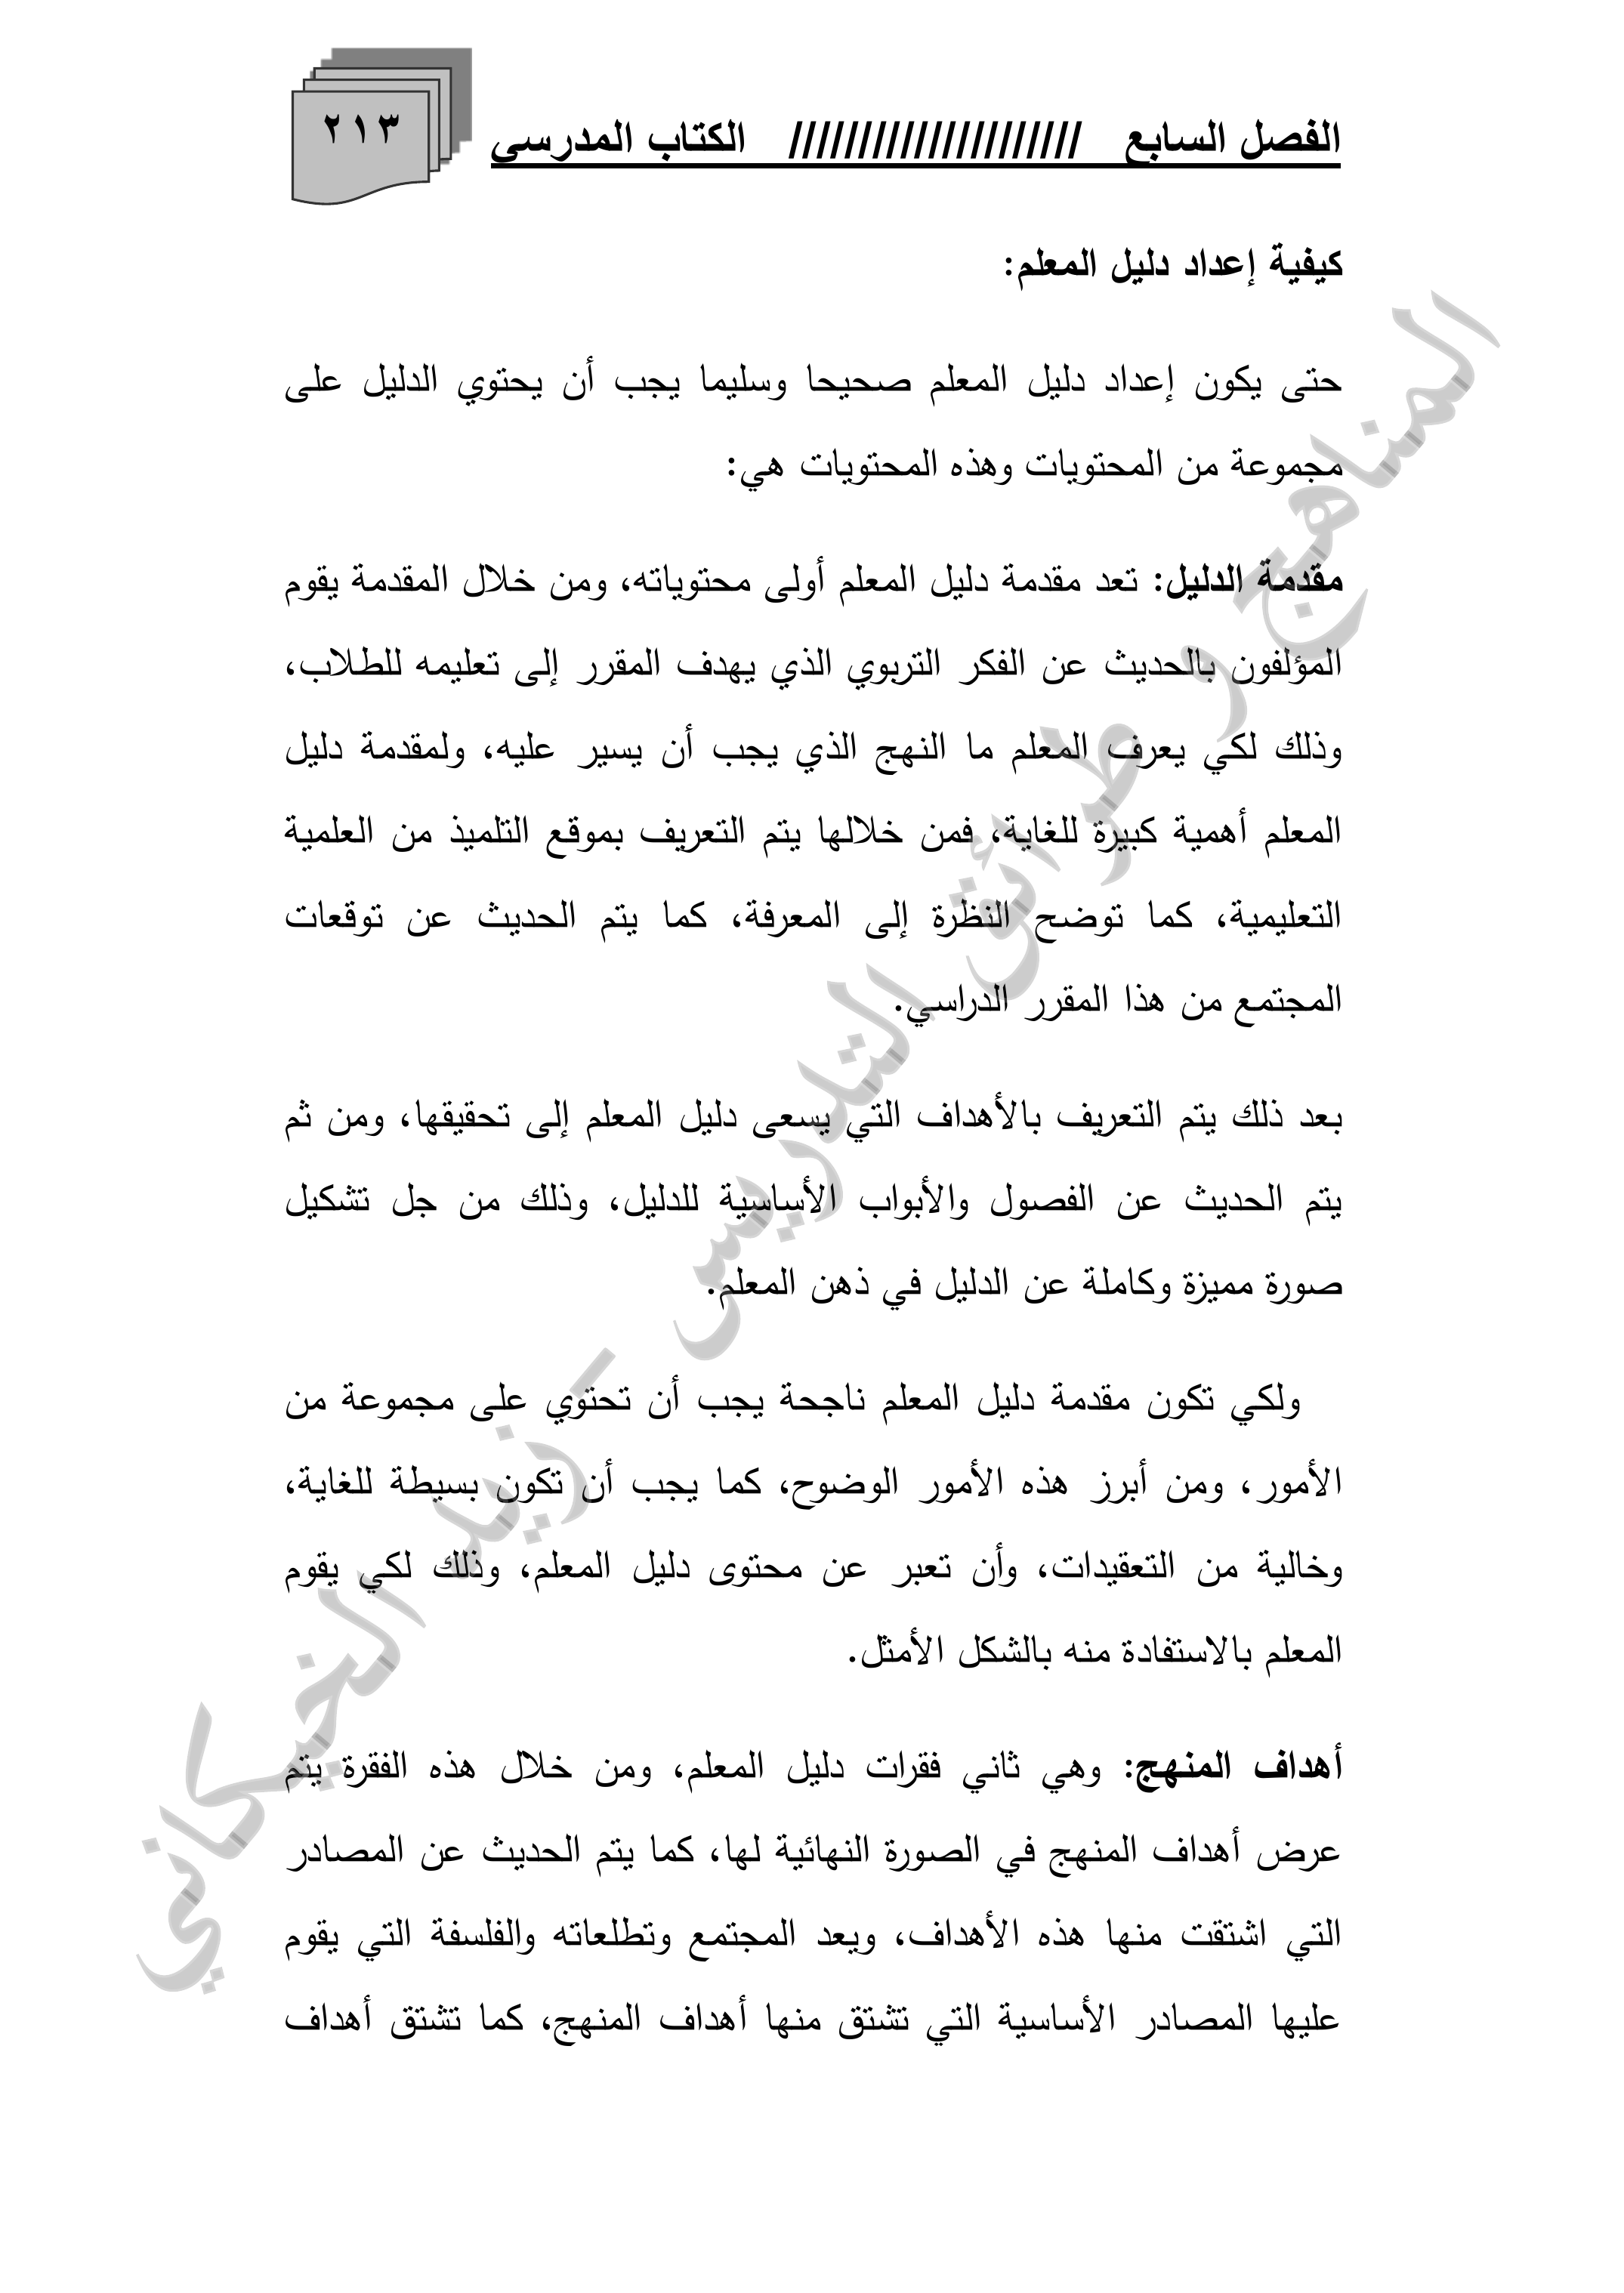 الفصل السابع ///////////////////// الكتاب المدرسي
٢١٣
كيفية إعداد دليل المعلم:
حتى يكون إعداد دليل المعلم صحيحا وسليما يجب أن يحتوي الدليل على
مجموعة من المحتويات وهذه المحتويات هي:
مقدمة الدليل: تعد مقدمة دليل المعلم أولى محتوياته، ومن خلال المقدمة يقوم
المؤلفون بالحديث عن الفكر التربوي الذي يهدف المقرر إلى تعليمه للطلاب،
وذلك لكي يعرف المعلم ما النهج الذي يجب أن يسير عليه، ولمقدمة دليل
المعلم أهمية كبيرة للغاية، فمن خلالها يتم التعريف بموقع التلميذ من العلمية
التعليمية، كما توضح النظرة إلى المعرفة، كما يتم الحديث عن توقعات
المجتمع من هذا المقرر الدراسي.
بعد ذلك يتم التعريف بالأهداف التي يسعى دليل المعلم إلى تحقيقها، ومن ثم
يتم الحديث عن الفصول والأبواب الأساسية للدليل، وذلك من جل تشكيل
صورة مميزة وكاملة عن الدليل في ذهن المعلم.
ولكي تكون مقدمة دليل المعلم ناجحة يجب أن تحتوي على مجموعة من
الأمور، ومن أبرز هذه الأمور الوضوح، كما يجب أن تكون بسيطة للغاية،
وخالية من التعقيدات، وأن تعبر عن محتوى دليل المعلم، وذلك لكي يقوم
المعلم بالاستفادة منه بالشكل الأمثل.
أهداف المنهج: وهي ثاني فقرات دليل المعلم، ومن خلال هذه الفقرة يتم
عرض أهداف المنهج في الصورة النهائية لها، كما يتم الحديث عن المصادر
التي اشتقت منها هذه الأهداف، ويعد المجتمع وتطلعاته والفلسفة التي يقوم
عليها المصادر الأساسية التي تشتق منها أهداف المنهج، كما تشتق أهداف
المناهج و طرائق التدريس - زيد الخيكاني